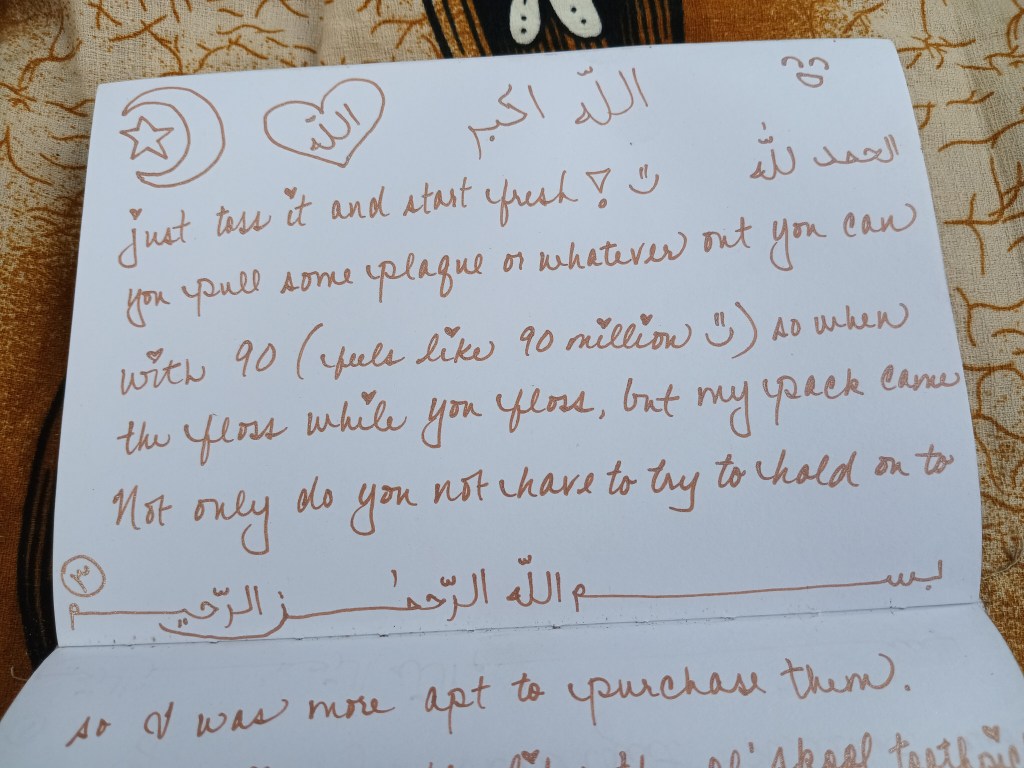 الله
الله اكبر
الحمد لله
just toss it and start fresh!
you pull some plaque or whatever out you can
with 90 (feels like 90 million ) so when
the floss while you floss, but my pack came
Not only do you not have to try to hold on to
٣
بسم اللّه الرّحمٰن الرّحيم
so I was more apt to purchase them.
like the ol' skool toothpic